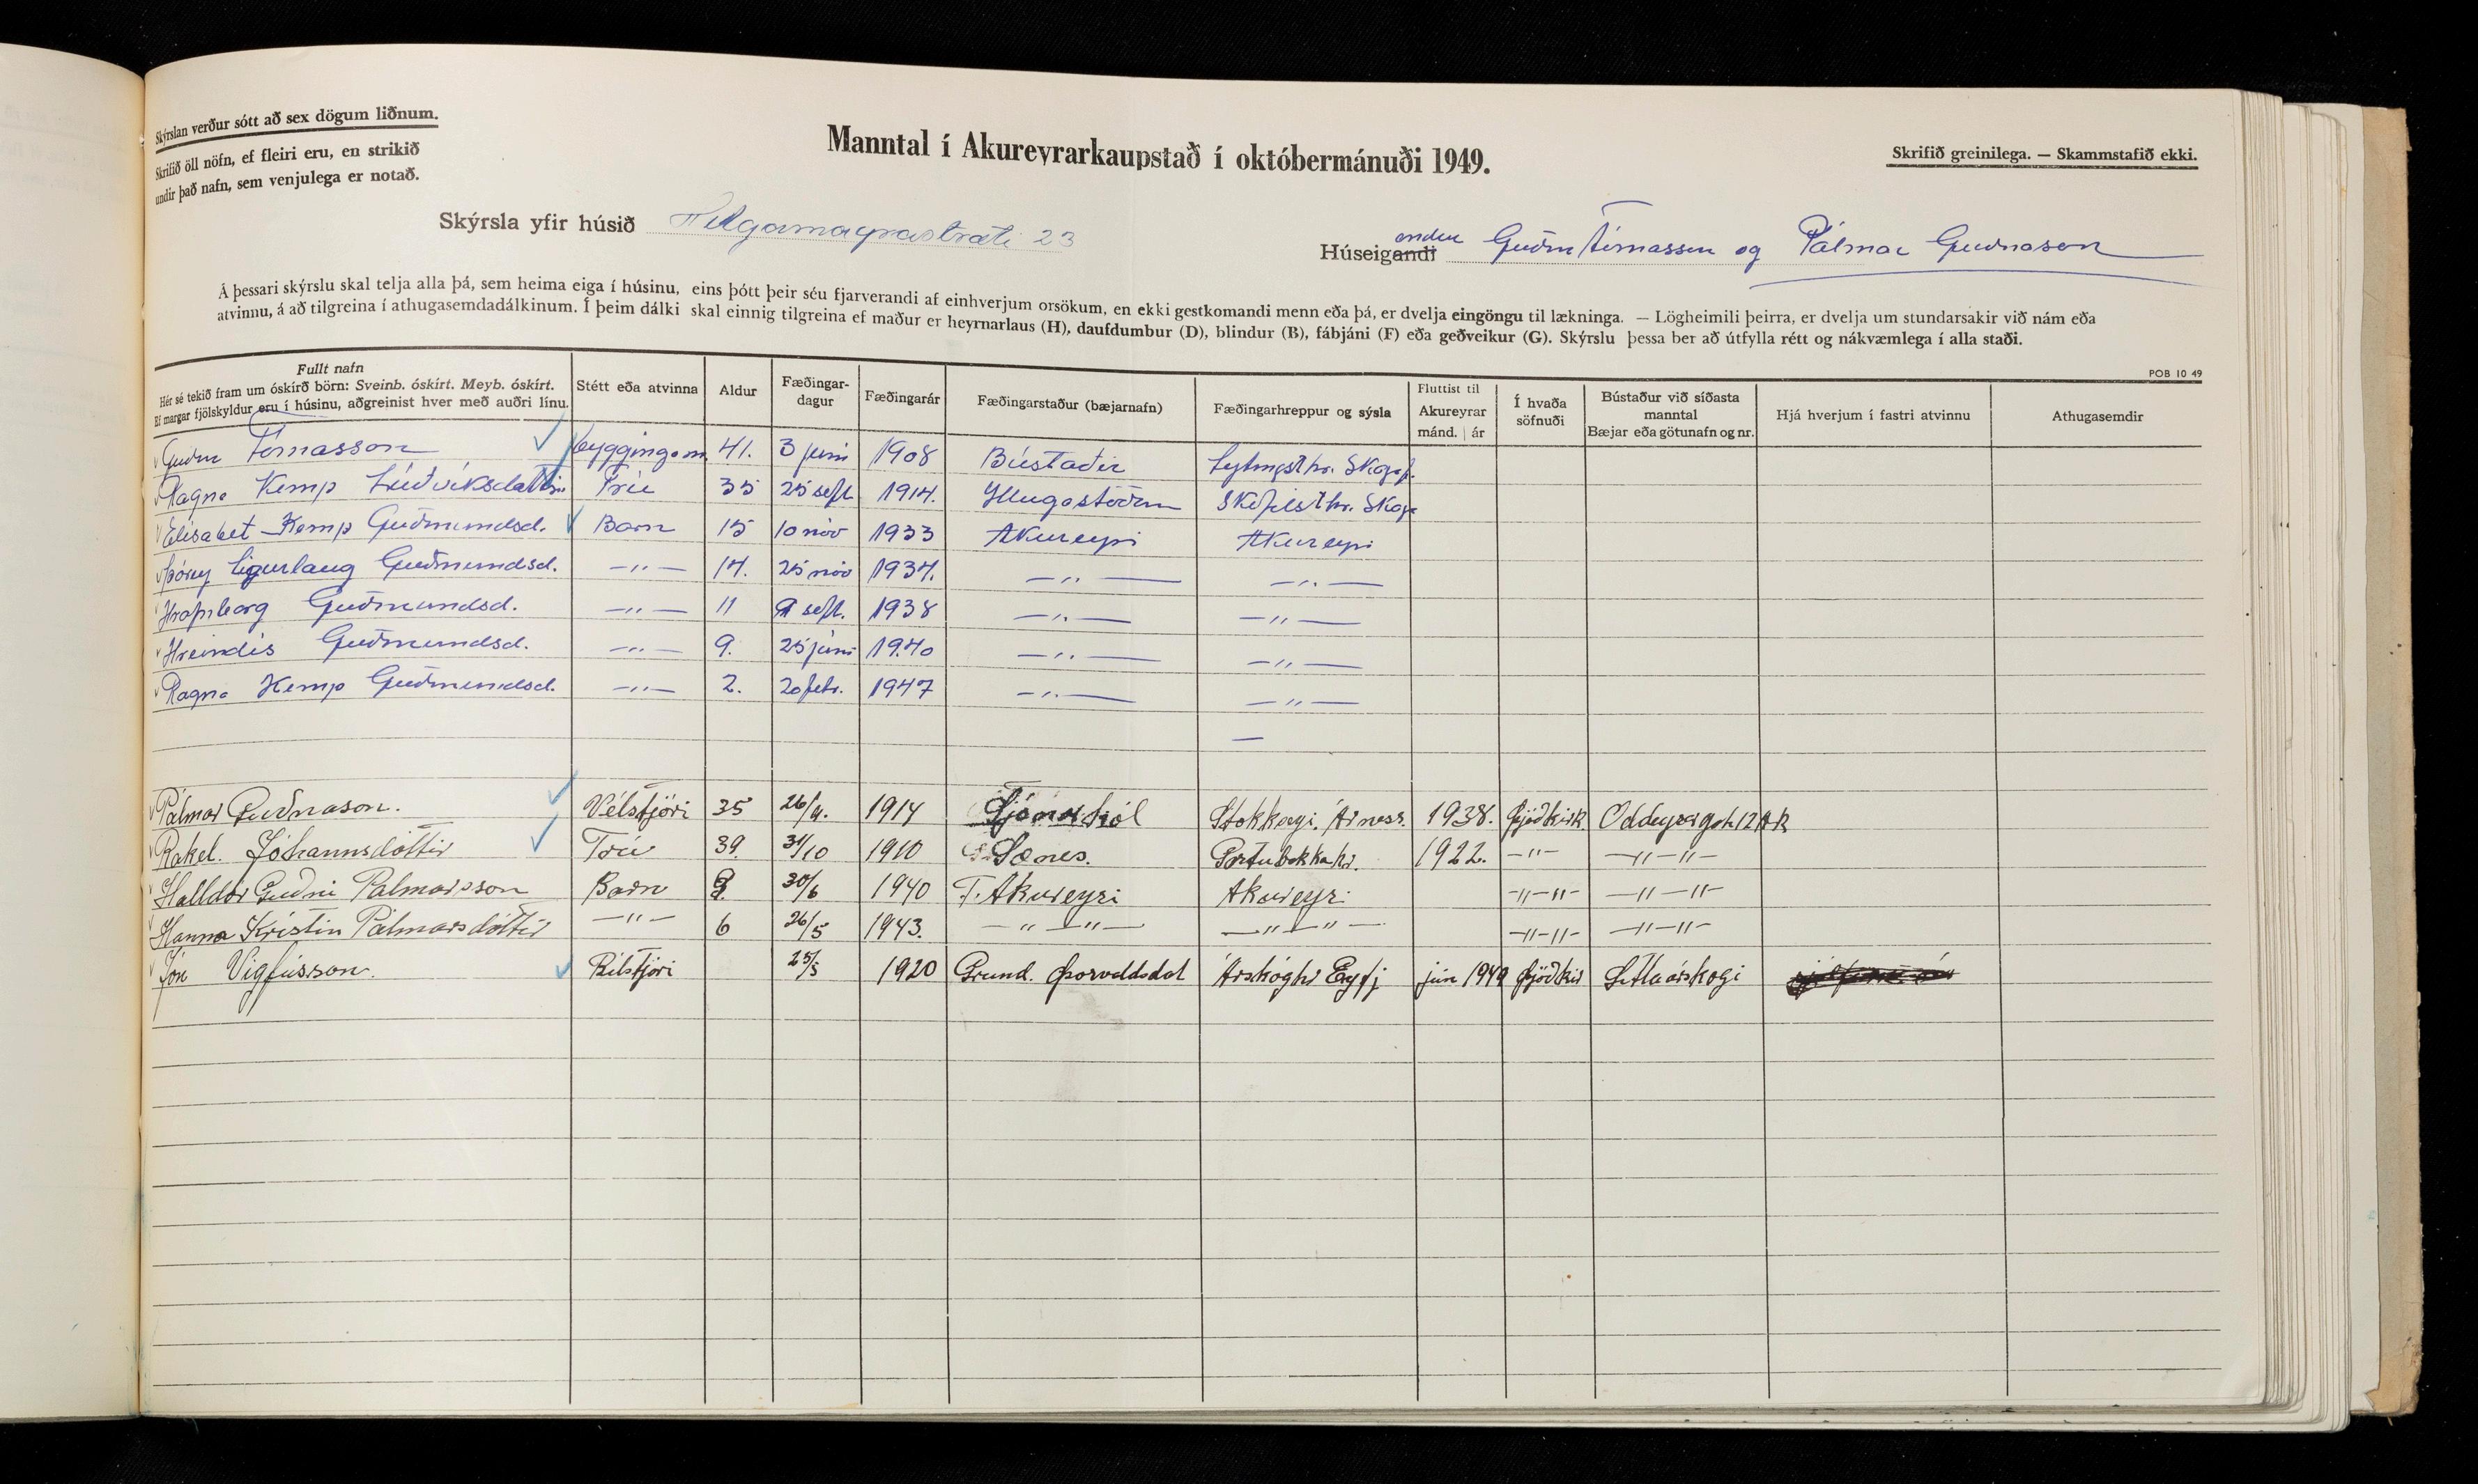 Skýrslan verður sótt að sex dögum liðnum.
Skrifið öll nöfn, ef fleiri eru, en strikið
undir það nafn, sem venjulega er notað.
Manntal í Akureyrarkaupstað í októbermánuði 1949.
Skrifið greinilega. — Skammstafið ekki.
Skýrsla yfir húsið Helgamagrastræti 23
Húseigandi endur Guðm Tómasson og Pálmar Guðnason
Á þessari skýrslu skal telja alla þá, sem heima eiga í húsinu, eins þótt þeir séu fjarverandi af einhverjum orsökum, en ekki gestkomandi menn eða þá, er dvelja eingöngu til lækninga. — Lögheimili þeirra, er dvelja um stundarsakir við nám eða
atvinnu, á að tilgreina í athugasemdadálkinum. Í þeim dálki skal einnig tilgreina ef maður er heyrnarlaus (H), daufdumbur (D), blindur (B), fábjáni (F) eða geðveikur (G). Skýrslu þessa ber að útfylla rétt og nákvæmlega í alla staði.
POB 10 49
Fullt nafn
Hér sé tekið fram um óskírð börn: Sveinb. óskírt. Meyb. óskírt.
Ef margar fjölskyldur eru í húsinu, aðgreinist hver með auðri línu.
Stétt eða atvinna
Aldur
Fæðingar-
dagur
Fæðingarár
Fæðingarstaður (bæjarnafn)
Fæðingarhreppur og sýsla
Fluttist til
Akureyrar
mánd. | ár
Í hvaða
söfnuði
Bústaður við síðasta
manntal
Bæjar eða götunafn og nr.
Hjá hverjum í fastri atvinnu
Athugasemdir
Guðm Tómasson byggingam. 41. 3 júni 1908 Bústaðir Lytingsthr. Skagf.
Ragna Kemp Lúðvíksdóttir Frú 35 25 sept 1914. Yllugastöðum Skefilsthr. Skagf
Elísabet Kemp Guðmundsd. Barn 15 10 nóv 1933 Akureyri Akureyri
Þórey Sigurlaug Guðmundsd. —"— 14. 25 nóv 1934. —"— —"—
Hrafnborg Guðmundsd. —"— 11 9 sept. 1938 —"— —"—
Hreindís Guðmundsd. —"— 9. 25 júní 1940 —"— —"—
Ragna Kemp Guðmundsd. —"— 2. 20 febr. 1947 —"— —"—
—
Pálmar Guðnason. Vélstjóri 35 1914 Stokkseyri. Árness. 1938. Þjóðkirk. Oddeyrargötu 12 Ak
Rakel. Jóhannsdóttir Frú 39. 31/10 1910 Sænes. 1922. —"— —"—"—
Halldór Guðni Pálmarsson Barn 9. 30/6 1940 F. Akureyri Akureyri —"—"— —"—"—
Hanna Kristín Pálmarsdóttir —"— 6 26/5 1943. —"—"— —"—"— —"—"— —"—"—
Jón Vigfússon. Bílstjóri 25/5 1920 Grund. Þorvaldsdal Árskóghr Eyfj jún 1949 Þjóðkir Litlaárskógi